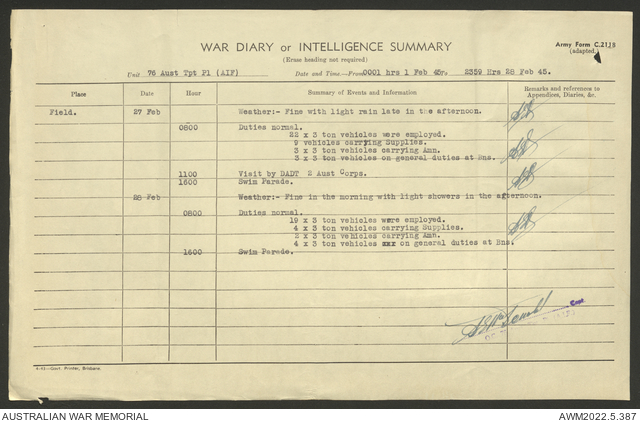 Army Form C.2118
(adapted.)
WAR DIARY or INTELLIGENCE SUMMARY
(Erase heading not required)
Unit 76 Aust Tpt Pl (AIF) Date and Time—From 0001 hrs 1 Feb 45 To 2359 Hrs 28 Feb 45.
Place Date Hour Summary of Events and Information Remarks and reference to Appendices, Diaries, &c.
Field. 27 Feb Weather:- Fine with light rain late in the afternoon.
0800 Duties normal.
22 x 3 ton vehicles were employed.
9 vehicles carrying Supplies.
3 x 3 ton vehicles carrying Amn.
3 x 3 ton vehicles on general duties at Bns.
1100 Visit by DADT 2 Aust Corps.
1600 Swim Parade.
28 Feb Weather:- Fine in the morning with light showers in the afternoon.
0800 Duties normal.
19 x 3 ton vehicles were employed.
4 x 3 ton vehicles carrying Supplies.
2 x 3 ton vehicles carrying Amn.
4 x 3 ton vehicles xxx on general duties at Bns.
1600 Swim Parade.
Capt
Govt. Printer, Brisbane
AUSTRALIAN WAR MEMORIAL AWM2022.5.387